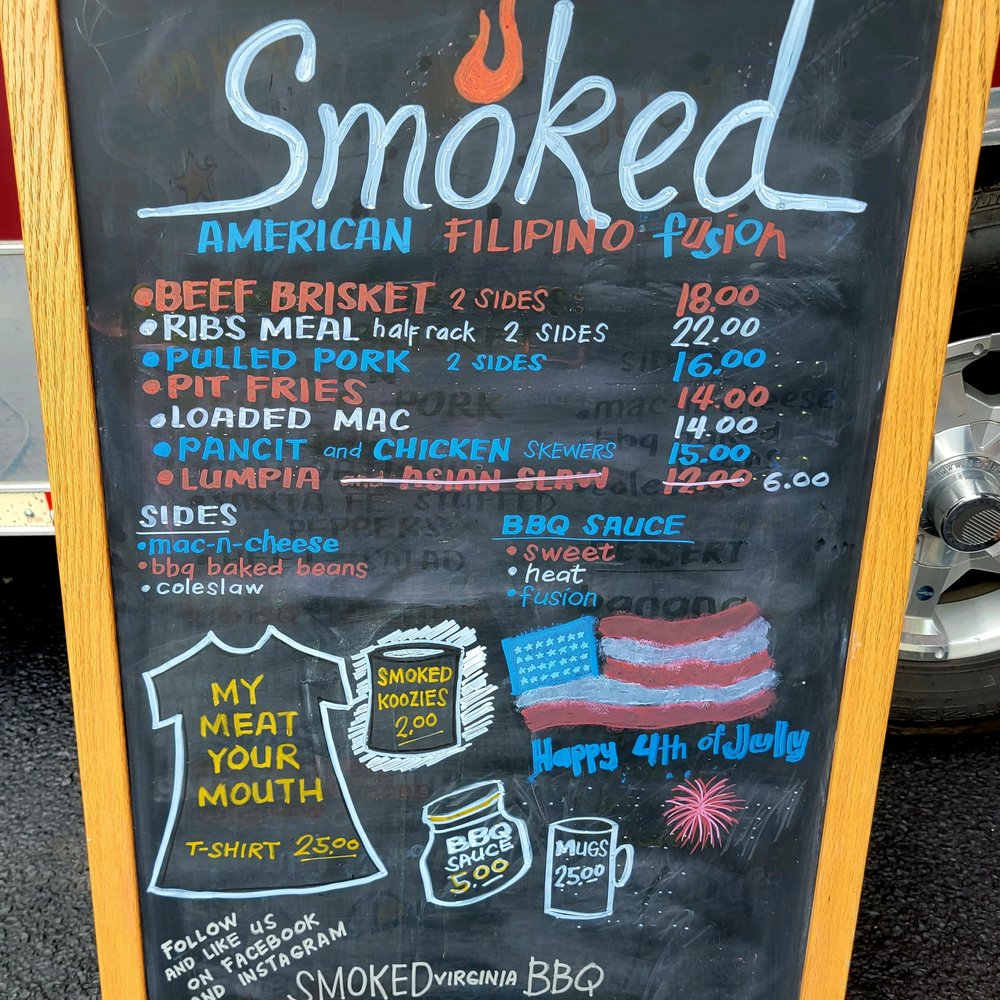 Smoked
AMERICAN FILIPINO fusion
•BEEF BRISKET 2 SIDES 18.00
•RIBS MEAL half rack 2 SIDES 22.00
•PULLED PORK 2 SIDES 16.00
•PIT FRIES 14.00
•LOADED MAC 14.00
•PANCIT and CHICKEN SKEWERS 15.00
•LUMPIA and ASIAN SLAW 12.00 6.00
SIDES
•mac-n-cheese
•bbq baked beans
•coleslaw
BBQ SAUCE
•sweet
•heat
•fusion
MY
MEAT
YOUR
MOUTH
T-SHIRT 25.00
SMOKED
KOOZIES
2.00
Happy 4th of July
BBQ
SAUCE
5.00
MUGS
25.00
FOLLOW
AND LIKE US
ON FACEBOOK
AND INSTAGRAM
SMOKED VIRGINIA BBQ